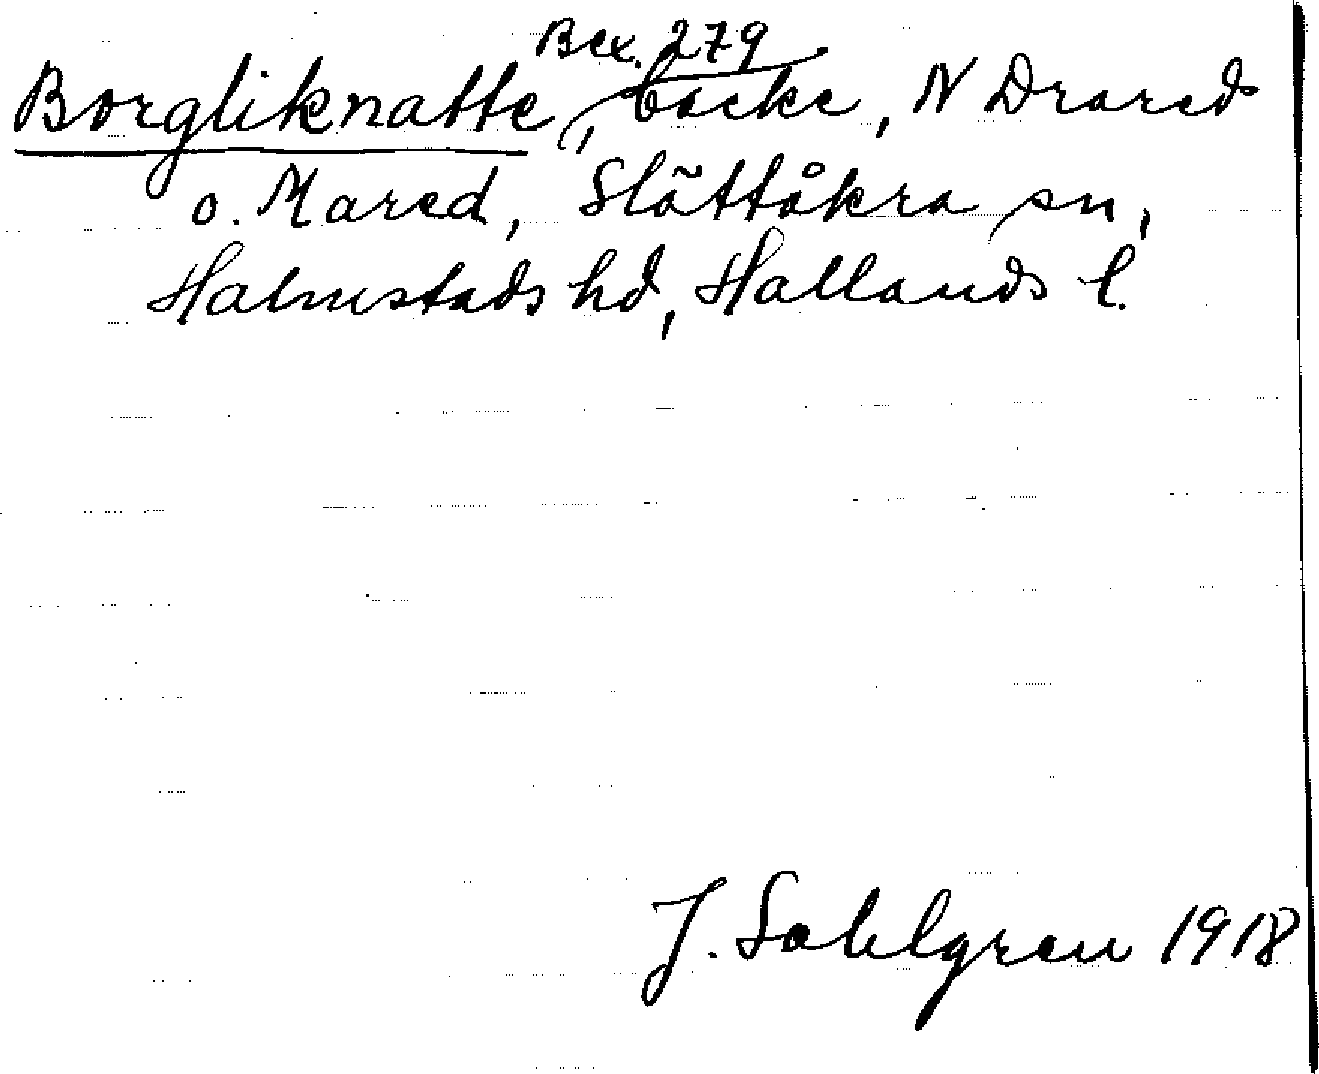 Bex. 279
Borgliknatte, backe, N Drareds
o. Mared, Slättåkra sn,
Halmstads hd, Hallands l.
J. Sahlgren 1918